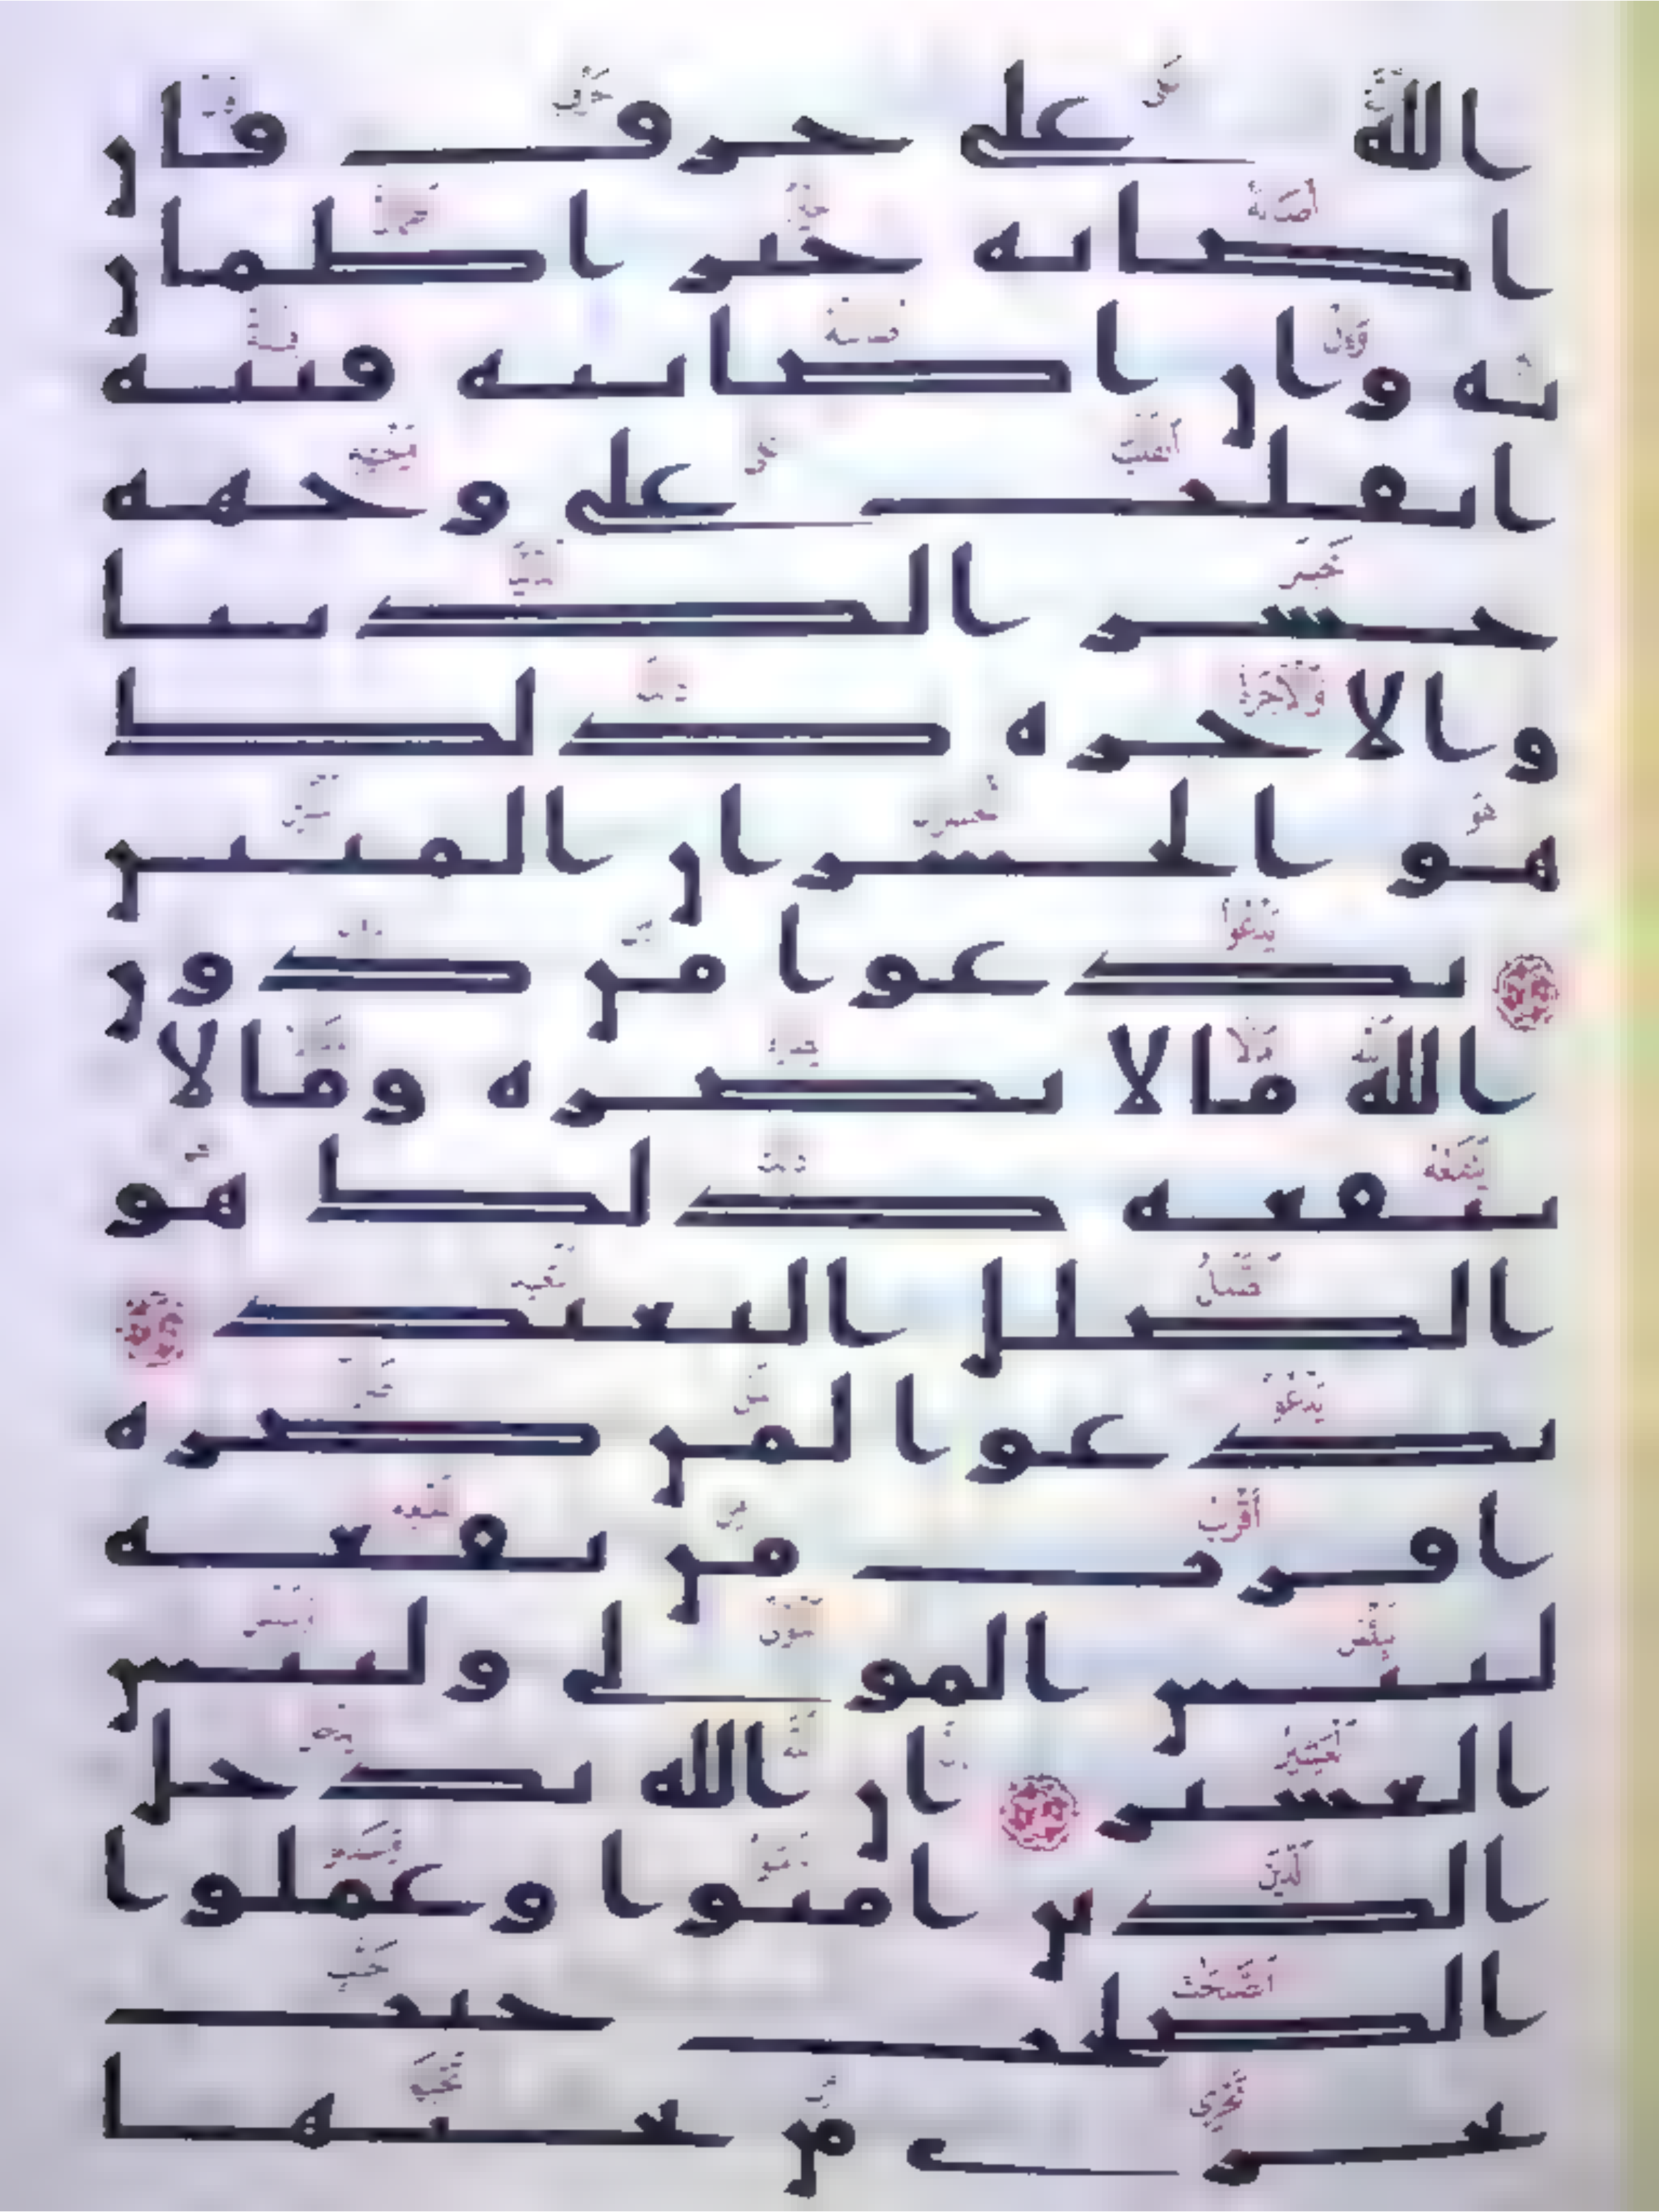 الله على حرف فان
اصابه خير اطمان
به وان اصابته فتنه
انقلب على وجهه
خسر الدنيا
والاخره ذلك
هو الخسران المبين
يدعوا من دون
الله مالا يضره ومالا
ينفعه ذلك هو
الضلل البعيد
يدعوا لمن ضره
اقرب من نفعه
لبئس المولى ولبئس
العشير ان الله يدخل
الذين امنوا وعملوا
الصلحت جنت
تجري من تحتها